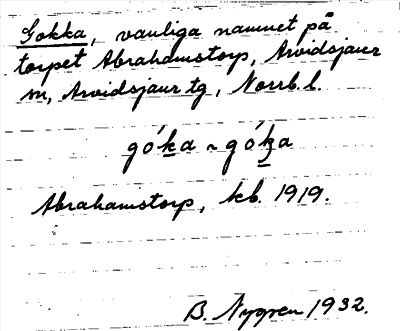 Gokka, vanliga namnet på
torpet Abrahamstorp, Arvidsjaur
sn, Arvidsjaur tg, Norrb. l.
góka ~ góka
Abrahamstorp, kb. 1919.
B. Nygren 1932.